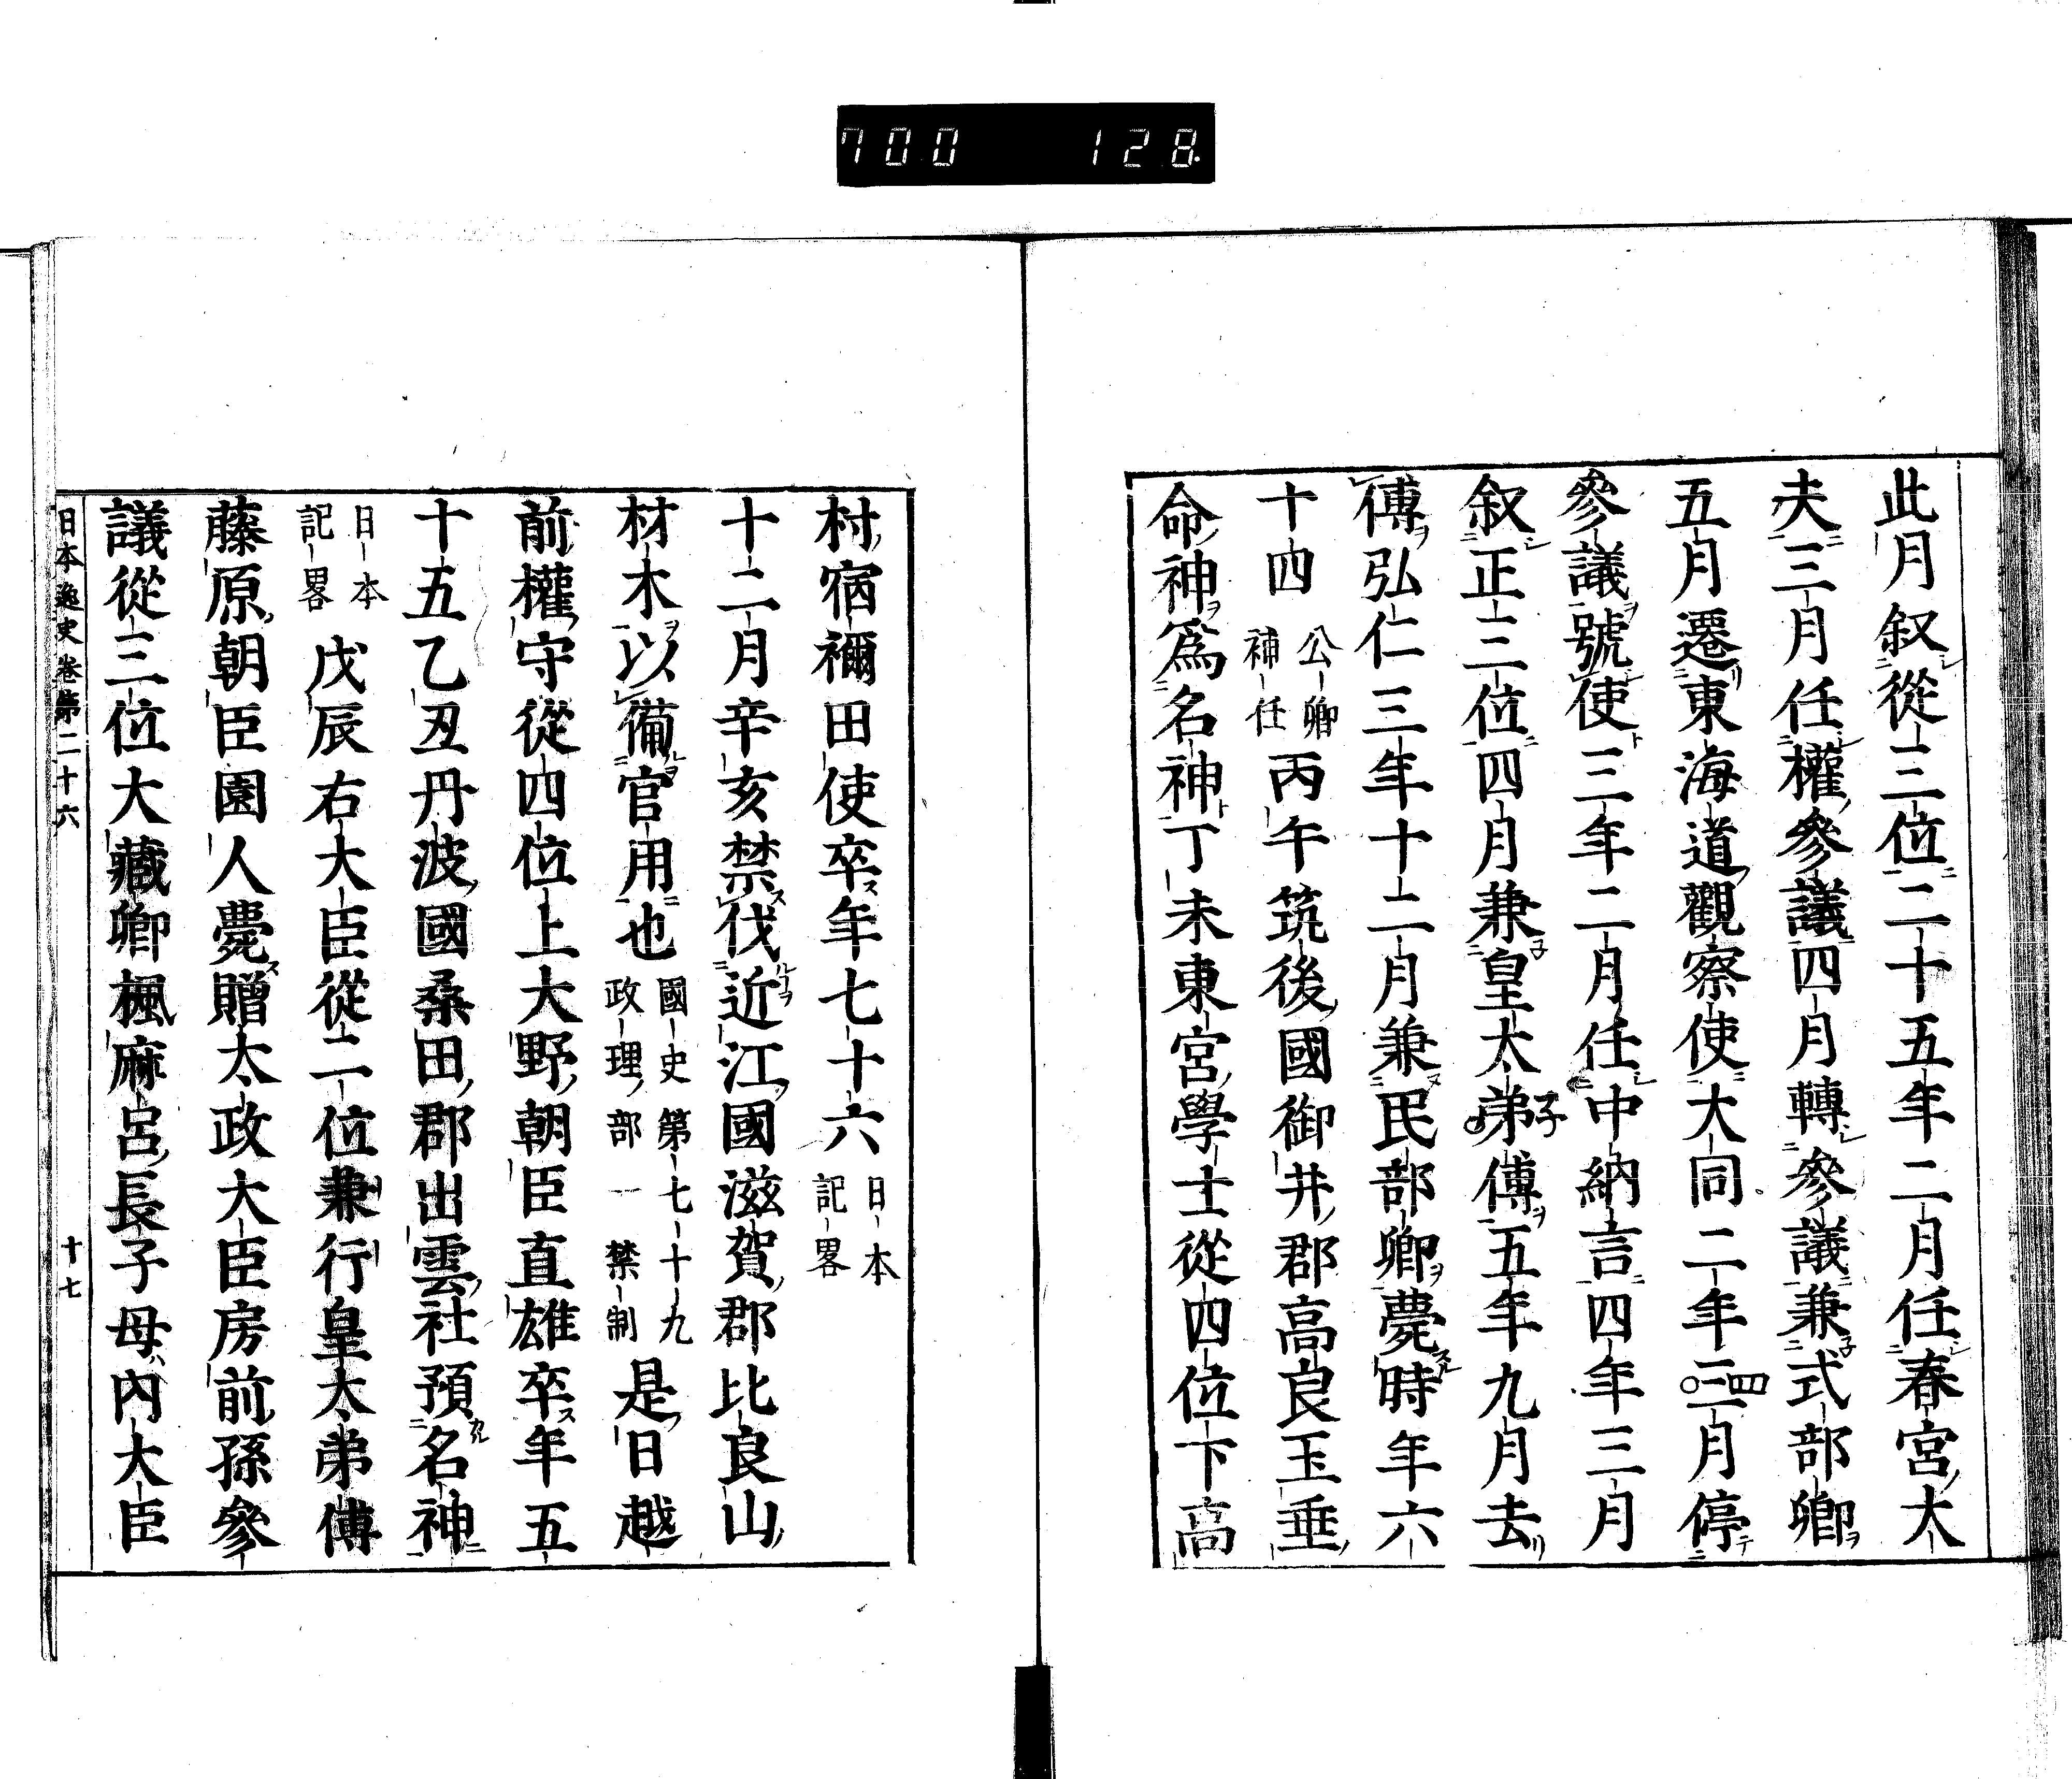 700 128
此月叙從三位二十五年二月任春宮大
夫三月任權參議四月轉參議兼式部卿
五月遷東海道觀察使大同二年三四月停
參議號使三年二月任中納言四年三月
叙正三位四月兼皇太弟子傅五年九月去
傅弘仁三年十二月兼民部卿薨時年六
十四公卿補任丙午筑後國御井郡高良玉垂
命神爲名神丁未東宮學士從四位下高
村宿禰田使卒年七十六日本記畧
十二月辛亥禁伐近江國滋賀郡比良山
材木以備官用也國史第七十九政理部一禁制是日越
前權守從四位上大野朝臣直雄卒年五
十五乙丑丹波國桑田郡出雲社預名神
日本記畧戊辰右大臣從二位兼行皇太弟傅
藤原朝臣園人薨贈太政大臣房前孫參
議從三位大藏卿楓麻呂長子母内大臣
日本逸史卷第二十六 十七